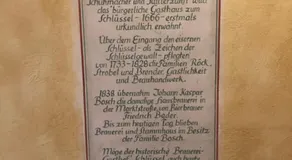 Schuhmacher und Sattlerzunft wird
das bürgerliche Gasthaus zum
Schlüssel - 1666 - erstmals
urkundlich erwähnt.
Über dem Eingang den eisernen
Schlüssel - als Zeichen der
Schlüsselgewalt - pflegten
von 1733-1828 die Familien Röck,
Strobel und Brender, Gastlichkeit
und Brauhandwerk.
1838 übernahm Johann Kaspar
Bosch die damalige Hausbrauerei in
der Marktstraße vom Bierbrauer
Friedrich Bader.
Bis zum heutigen Tag blieben
Brauerei und Stammhaus im Besitz
der Familie Bosch.
Möge der historische Brauerei-
Gasthof Schlüssel auch heute